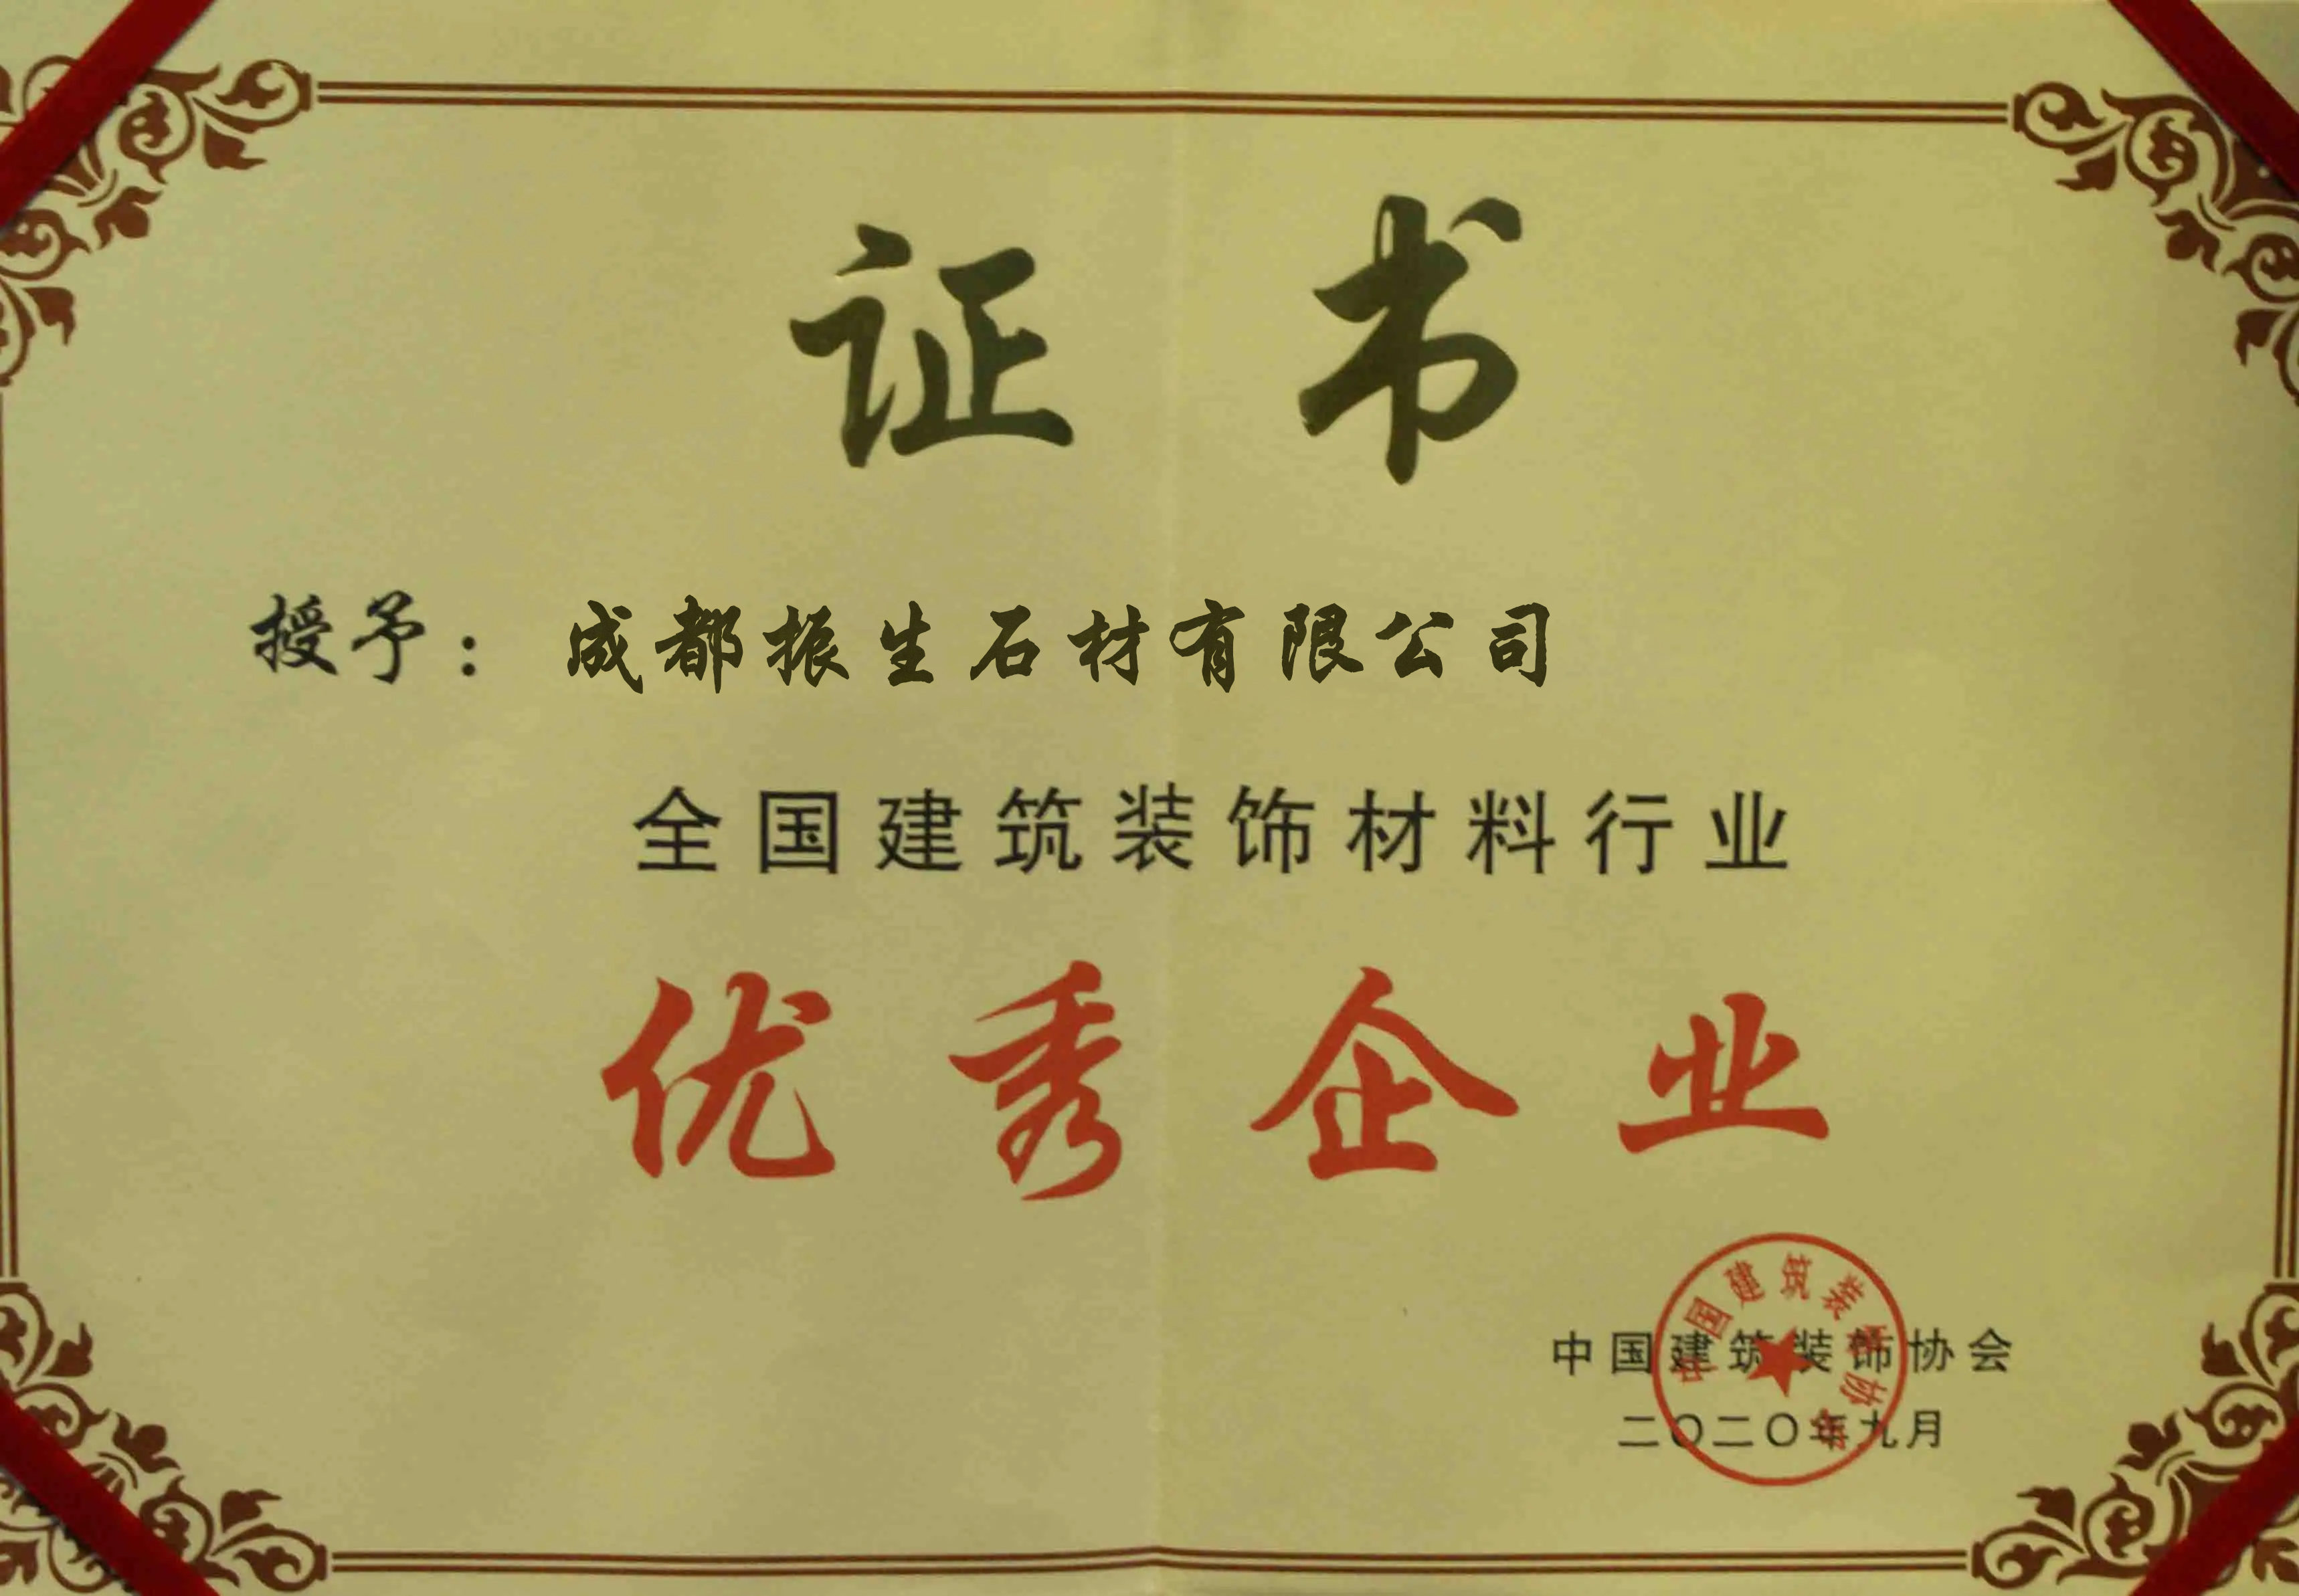 证书
授予：成都振生石材有限公司
全国建筑装饰材料行业
优秀企业
中国建筑装饰协会
二〇二〇年九月
中国建筑装饰协会